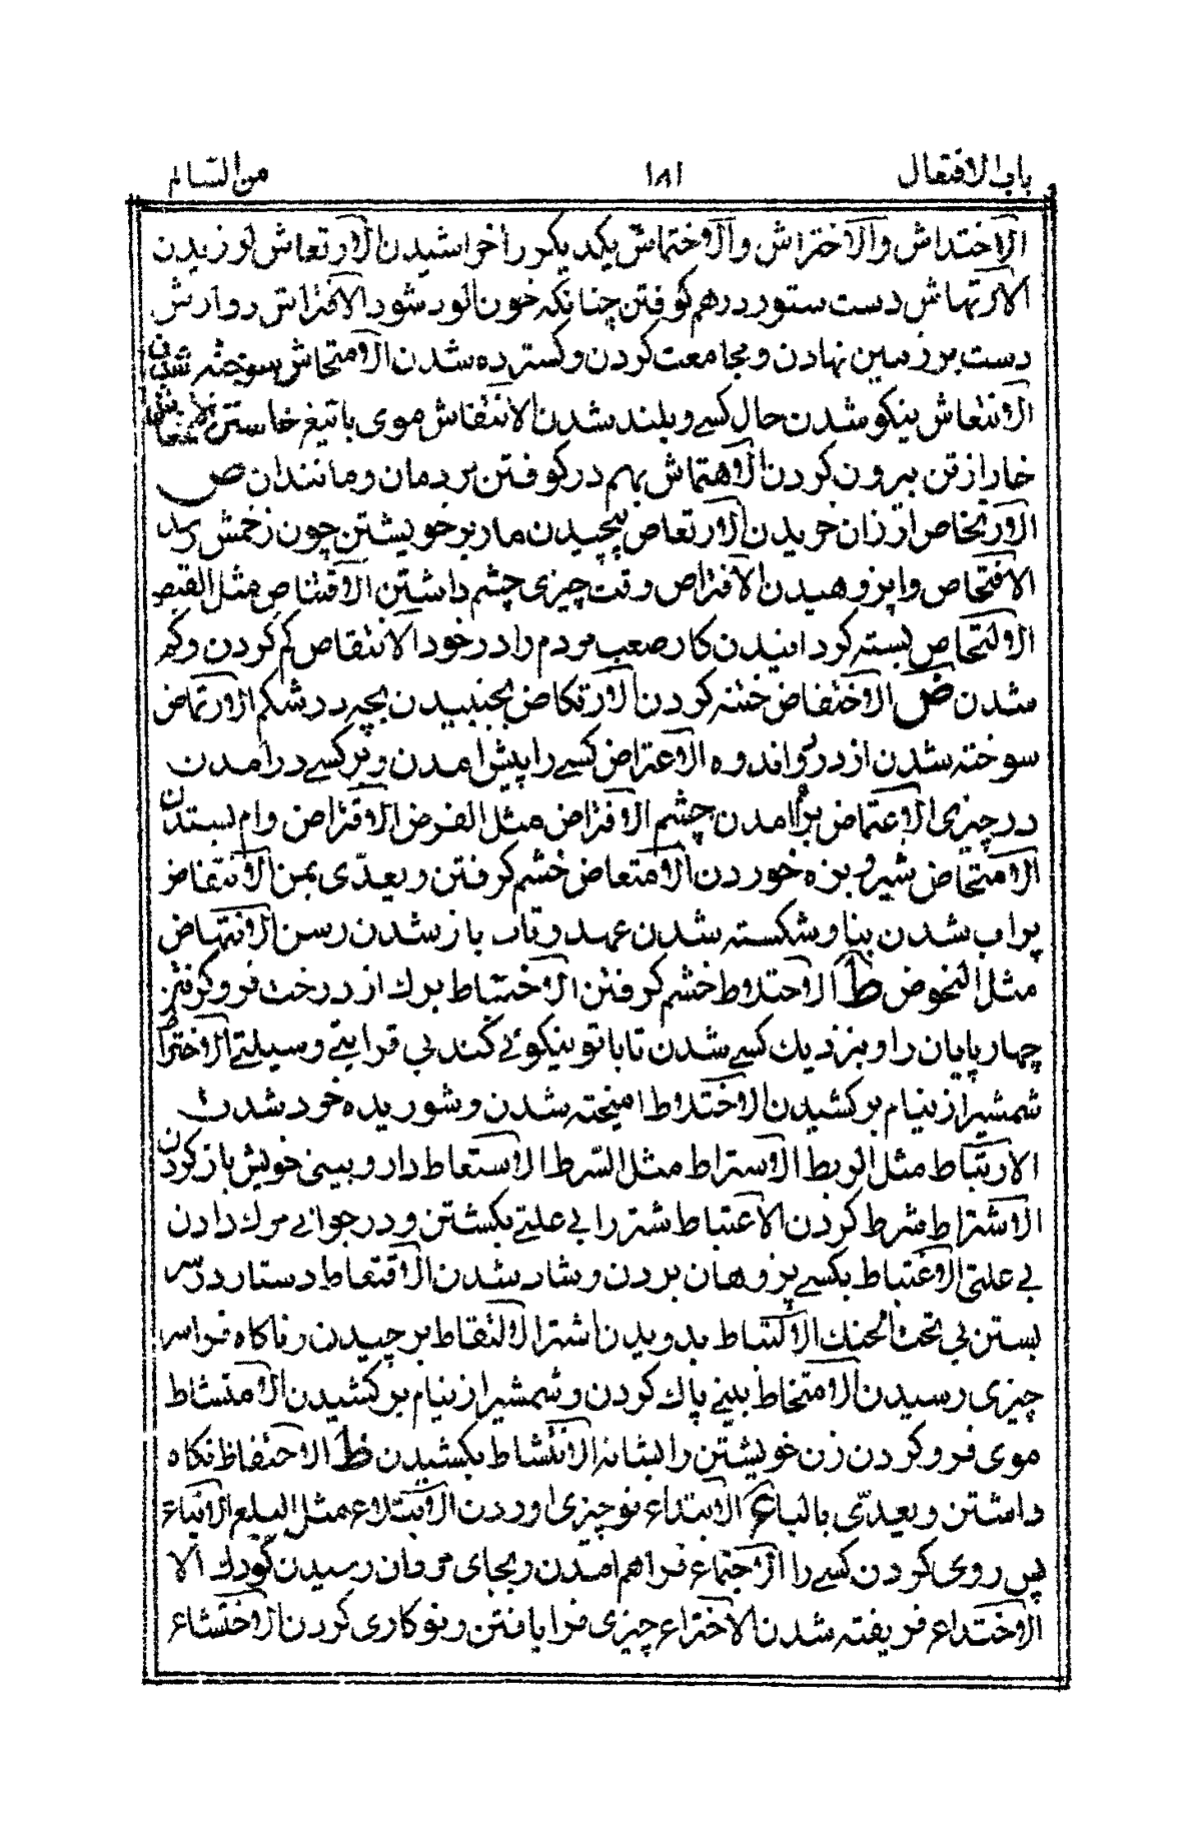 باب الافتعال ۱۸۱ من السالم
الاختداش والاختراش والاختماش یکدیکر را خراشیدن الارتعاش لرزیدن
الارتهاش دست ستور درهم کوفتن چنانکه خون الود شود الافتراش روارش
دست بر زمین نهادن ومجامعت کردن وکسترده شدن الامتحاش سوخته شدن
الانتعاش نیکو شدن حال کسے وبلند شدن الانتقاش موی باتیغ خاستن
خار از تن بیرون کردن الاهتماش بهم در کوفتن مردمان ومانندان ص
الارتخاص ارزان خریدن الارتعاص پیچیدن مار بر خویشتن چون زخمش رسد
الافتحاص واپزوهیدن الافتراص وقت چیزی چشم داشتن الاقتناص مثل القنص
الالتحاص بسته کردانیدن کار صعب مردم را در خود الانتقاص کم کردن وکم
شدن ض الاختفاض ختنه کردن الارتکاض بجنبیدن بچه در شکم الارتماض
سوخته شدن از درد واندوه الاعتراض کسے را پیش امدن وبر کسے درامدن
در چیزی الاغتماض برامدن چشم الافتراض مثل الفرض الاقتراض وام بستدن
الامتخاض شیر بزه خوردن الامتعاض خشم کرفتن ویعدّی بمن الانتقاض
پراب شدن بنا وشکسته شدن عهد وتاب باز شدن رسن الانتهاض
مثل النهوض ط الاحتلاط خشم کرفتن الاختباط برك از درخت فرو کرفتن
چهارپایان را وبنزدیك کسے شدن تا با تو نیکوئے کند بی قرابتے وسیلتے الاختراط
شمشیر از نیام بر کشیدن الاختلاط امیخته شدن وشوریده خرد شدن
الارتباط مثل الربط الاستراط مثل السّرط الاستعاط دارو ببینی خویش باز کردن
الاشتراط شرط کردن الاعتباط شتر را بے علتے بکشتن ودر جوانے مرك دادن
بے علتے الاغتباط بکسے پزوهان بردن وشاد شدن الاقتعاط دستار در سر
بستن بی تحت الحنك الالتباط بدویدن اشتر الالتقاط بر چیدن وناکاه فراسر
چیزی رسیدن الامتخاط بینے پاك کردن وشمشیر از نیام بر کشیدن الامتشاط
موی فرو کردن زن خویشتن را بشانه الانتشاط بکشیدن ظ الاحتفاظ نکاه
داشتن ویعدّی بالباء ع الابتداع نو چیزی اوردن الابتلاع مثل البلع الاتباع
پس روی کردن کسے را الاجتماع فراهم امدن وبجای مردان رسیدن کودك الا
الاختداع فریفته شدن الاختراع چیزی فرا یافتن ونوکاری کردن الاختشاع